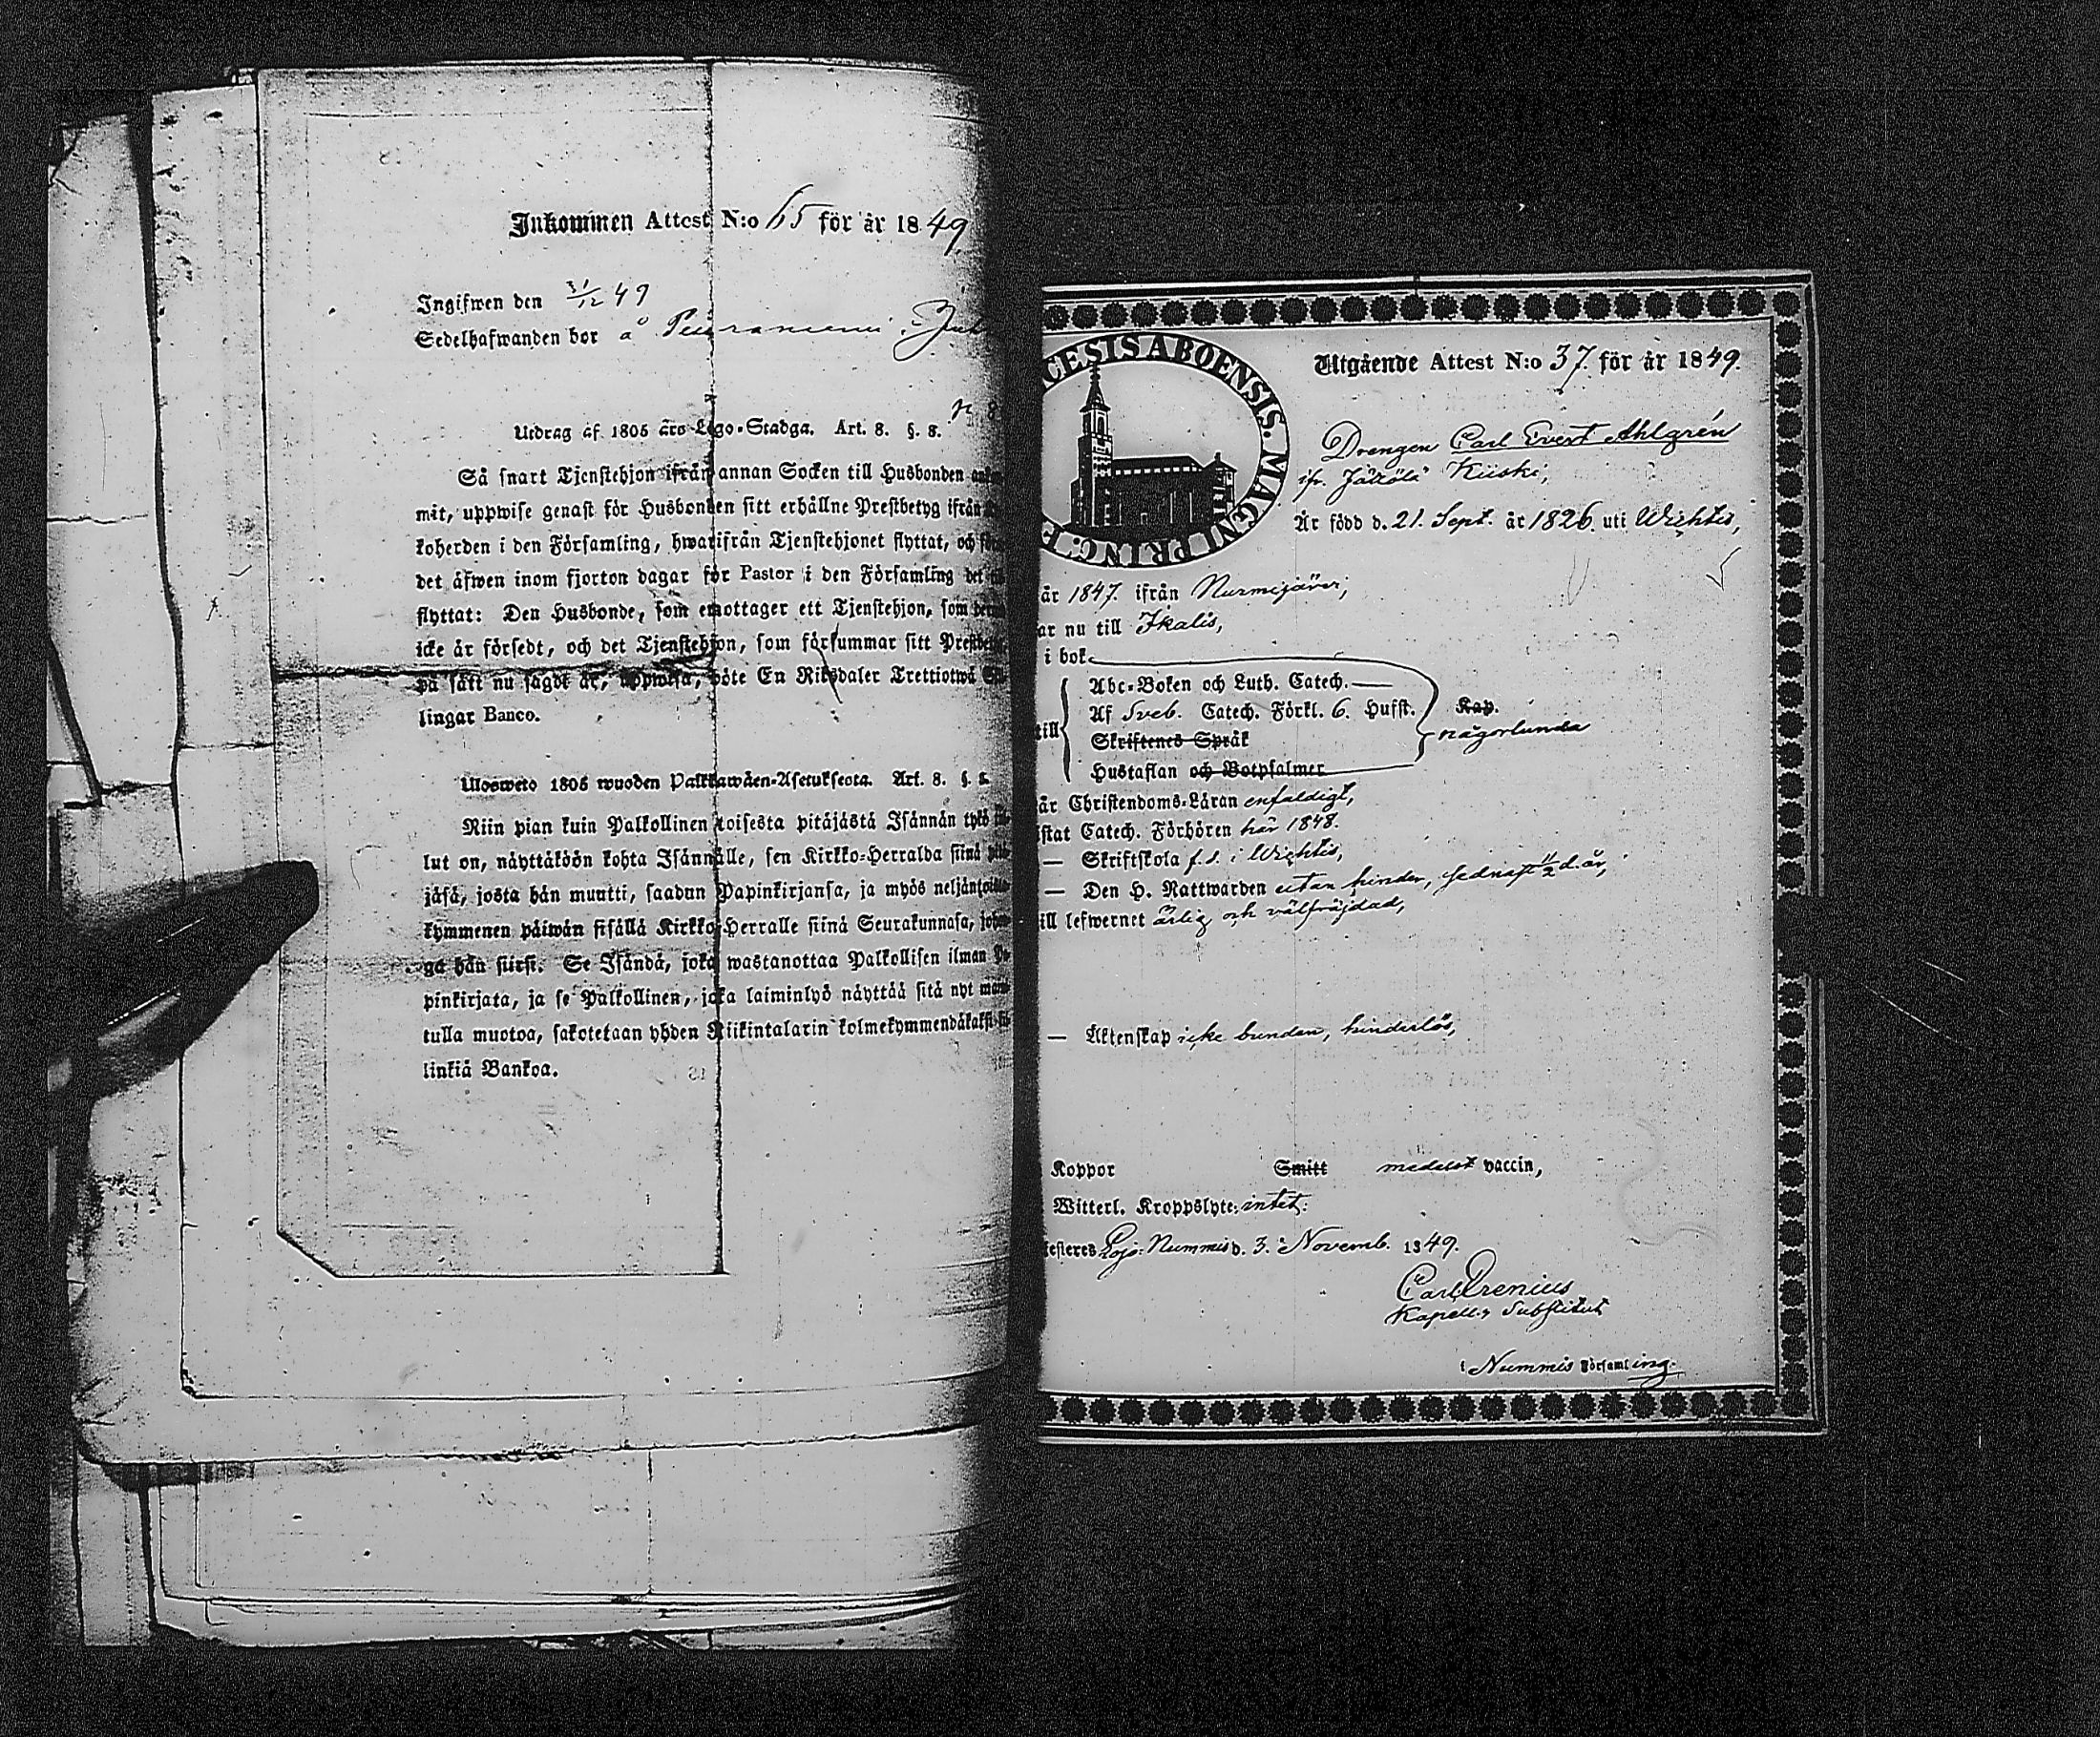 Inkommen Attest N:o 65 för år 1849
Ingifwen den 31/12 49
Sedelhafwanden bor å
Utdrag af 1805 års Lego-Stadga. Art. 8. §. 8.
Så snart Tjenstehjon ifrån annan Socken till Husbonden
mit, uppwise genast för Husbonden sitt erhållne Prestbetyg ifrån
koherden i den Församling, hwarifrån Tjenstehjonet flyttat, och
det äfwen inom fjorton dagar för Pastor i den Församling det
flyttat: Den Husbonde, som emottager ett Tjenstehjon, som
icke är försedt, och det Tjenstehjon, som försummar sitt
på sätt nu sagdt är, uppwisa, böte En Riksdaler Trettiotwå
lingar Banco.
Ulosweto 1805 wuoden Palkkawäen-Asetuksesta. Art. 8. §. 8.
Niin pian kuin Palkollinen toisesta pitäjästä Isännän tykö
lut on, näyttäköön kohta Isännälle, sen Kirkko-Herralda siinä
jäsä, josta hän muutti, saadun Papinkirjansa, ja myös
kymmenen päiwän sisällä Kirkko-Herralle siinä Seurakunnasa,
ga hän siirsi. Se Isändä, joka wastanottaa Palkollisen ilman
pinkirjata, ja se Palkollinen, joka laiminlyö näyttää sitä nyt
tulla muotoa, sakotetaan yhden Riikintalarin
linkiä Bankoa.
CESIS ABOENSIS. MAGNI PRINC. F
Utgående Attest N:o 37. för år 1849.
Drengen Carl Evert Ahlgrén
ifr. Jättölä Kiiski,
Är född d. 21. Sept. år 1826. uti Wichtis,
år 1847. ifrån Nurmijärvi,
ar nu till Ikalis,
i bok
Abc-Boken och Luth. Catech.
Af Sveb. Catech. Förkl. 6. Hufst. Kap.
till Skriftenes Språk någorlunda
Hustaflan och Botpsalmer
är Christendoms-Läran enfaldigt,
istat Catech. Förhören här 1848.
— Skriftskola f.d. i Wichtis,
— Den H. Nattwarden utan hinder, sednast d.år,
ill lefwernet ärlig och välfräjdad,
— Äktenskap icke bunden, hinderlös,
Koppor Smitt medelst vaccin,
Witterl. Kroppslyte: intet:
testeres Lojo-Nummis d. 3. Novemb. 1849.
Carl Orenius
Kapell. Substitut
i Nummis Församling.